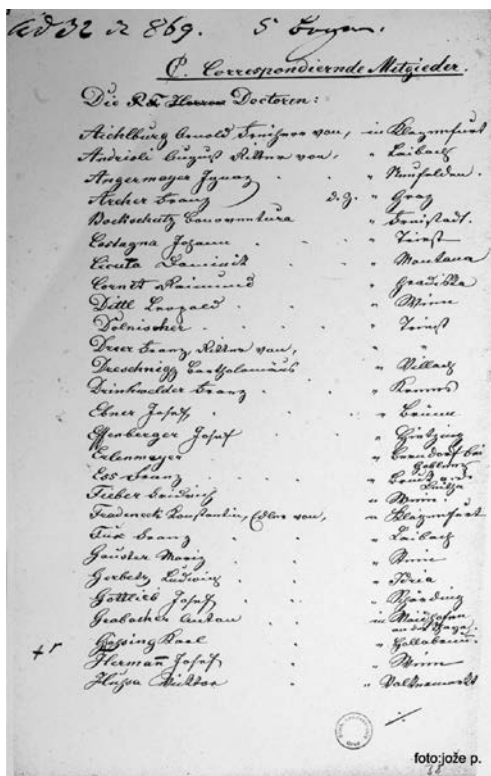 ad 32 Z 869. 5 Bogen.
C. Correspondiernde Mitglieder.
Die P.T. Herren Doctoren:
Aichlburg Arnold Freiherr von, in Klagenfurt
Andrioli August Ritter von, " Laibach
Angermayer Ignaz " Neufelden.
Archer Franz d.Z. " Graz
Bockschatz Bonaventura " Freistadt.
Castagna Johann " Triest
Cicuta Dominik " Montana
Cornet Raimund " Gradiska
Dittl Leopold " Wien
Dolnischer " Triest
Franz, Ritter von, " "
Dreschnigg Bartholomäus " Villach
Drinkwelder Franz " Krems
Ebner Josef " Brünn
Effenberger Josef " Hietzing
Erlenmeyer " Bendorf bei Coblenz
Ess Franz " Bruck a. d. Leitha
Fieber Fridrich " Wien.
Fradeneck Konstantin, Edler von, " Klagenfurt
Fux Franz " Laibach
Gauster Moriz " Wien
Gerbetz Ludwig " Idria
Gottlieb Josef " Schärding
Grabacher Anton in Waidhofen an der Thaya.
Karl " Hollabrunn.
Hermann Josef " Wien
Hussa Viktor " Völkermarkt
foto:jože p.